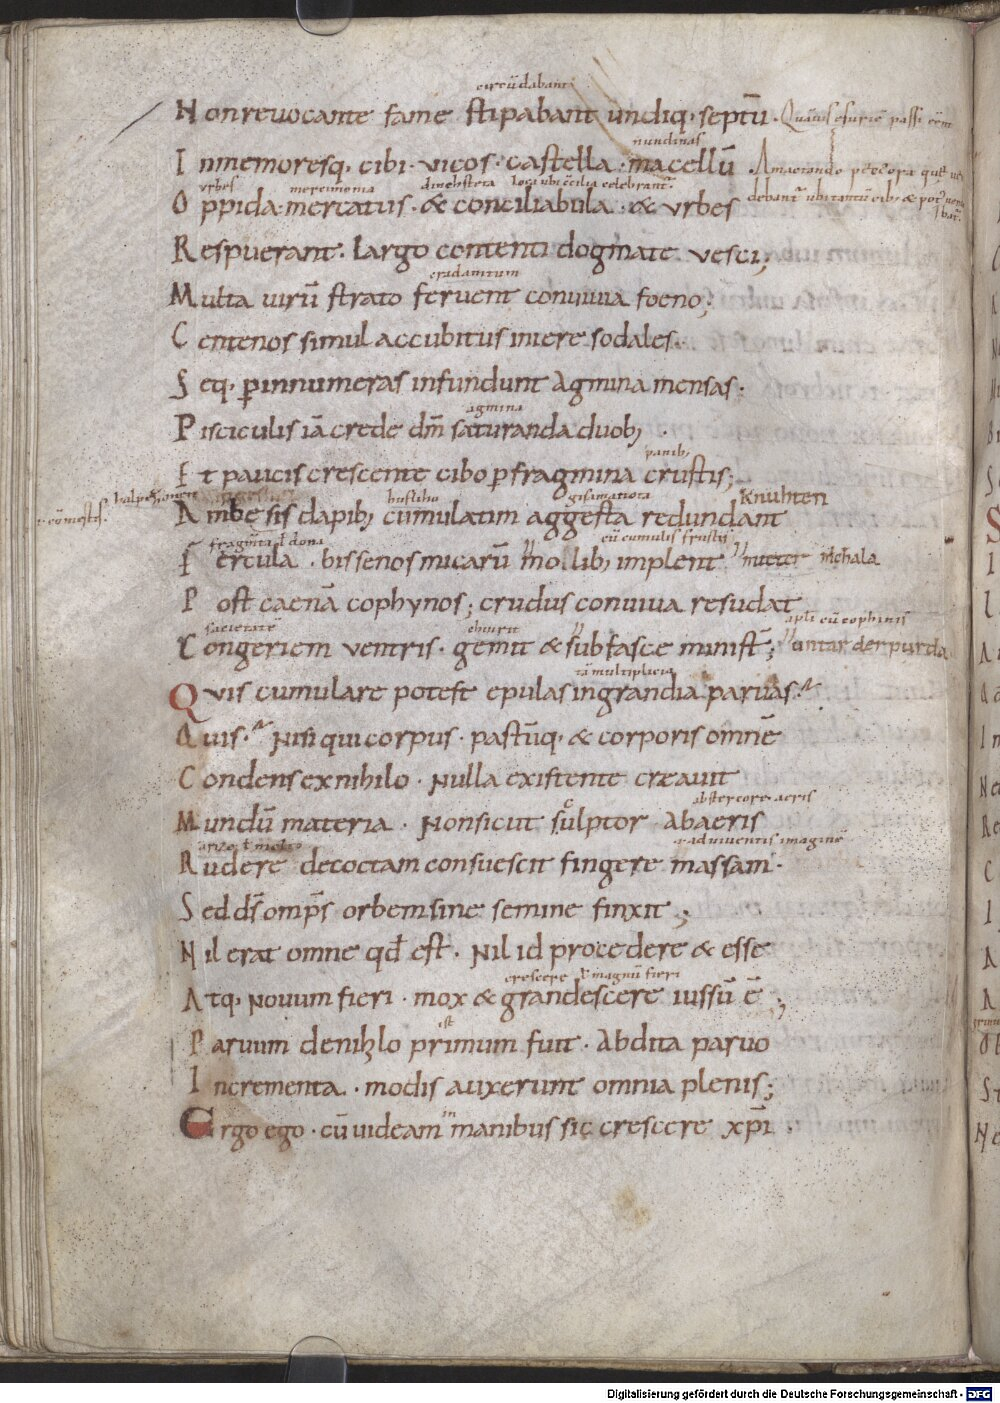 circūdabant
Non reuocante fame stipabant undiq· septū· Quāuis esuriē passi
nundinas
Inmemoresq· cibi· vicos· castella· macellū· A mactando pecora
vrbes mercimonia loca ubi celebrant̄
Oppida· mercatus· & conciliabula· & vrbes debant̄ ubi
Respuerant· largo contenti dogmate vesci;
Multa uirū strato feruent conuiuia foeno;
Centenos simul accubitus iniere sodales·
Seq· ꝑ innumeras infundunt agmina mensas·
agmina
Pisciculis iā crede dm̄ saturanda duob;
panib;
Et paucis crescente cibo ꝑ fragmina crustis;
Ambesis dapib; cumulatim aggesta redundant knuhten
fragm̄ta ł dona cū cumulis frustis
Fercula· bissenos micarū mollib; implent
Post caenā cophynos; crudus conuiua resudat
sacietatē apłi cū cophinis
Congeriem ventris· gemit & subfasce minist̄;
tā multiplicia
Quis cumulare potest epulas in grandia paruas·
Quis· Nisi qui corpus· pastūq· & corporis omnē
Condens ex nihilo· Nulla existente creauit
ab stercore aeris
Mundū materia· Non sicut sculptor ab aeris
ad viuentis imaginē
Rudere decoctam consuescit fingere massam·
Sed ds̄ omp̄s orbem sine semine finxit;
Nil erat omne qđ est· Nil id procedere & esse
crescere ł magnū fieri
Atq· Novum fieri· mox & grandescere iussū ē;
est
Paruum de nihilo primum fuit· Abdita paruo
Incrementa· modis auxerunt omnia plenis;
Ergo ego· cū uideam in manibus sic crescere xp̄i·
Digitalisierung gefördert durch die Deutsche Forschungsgemeinschaft - DFG